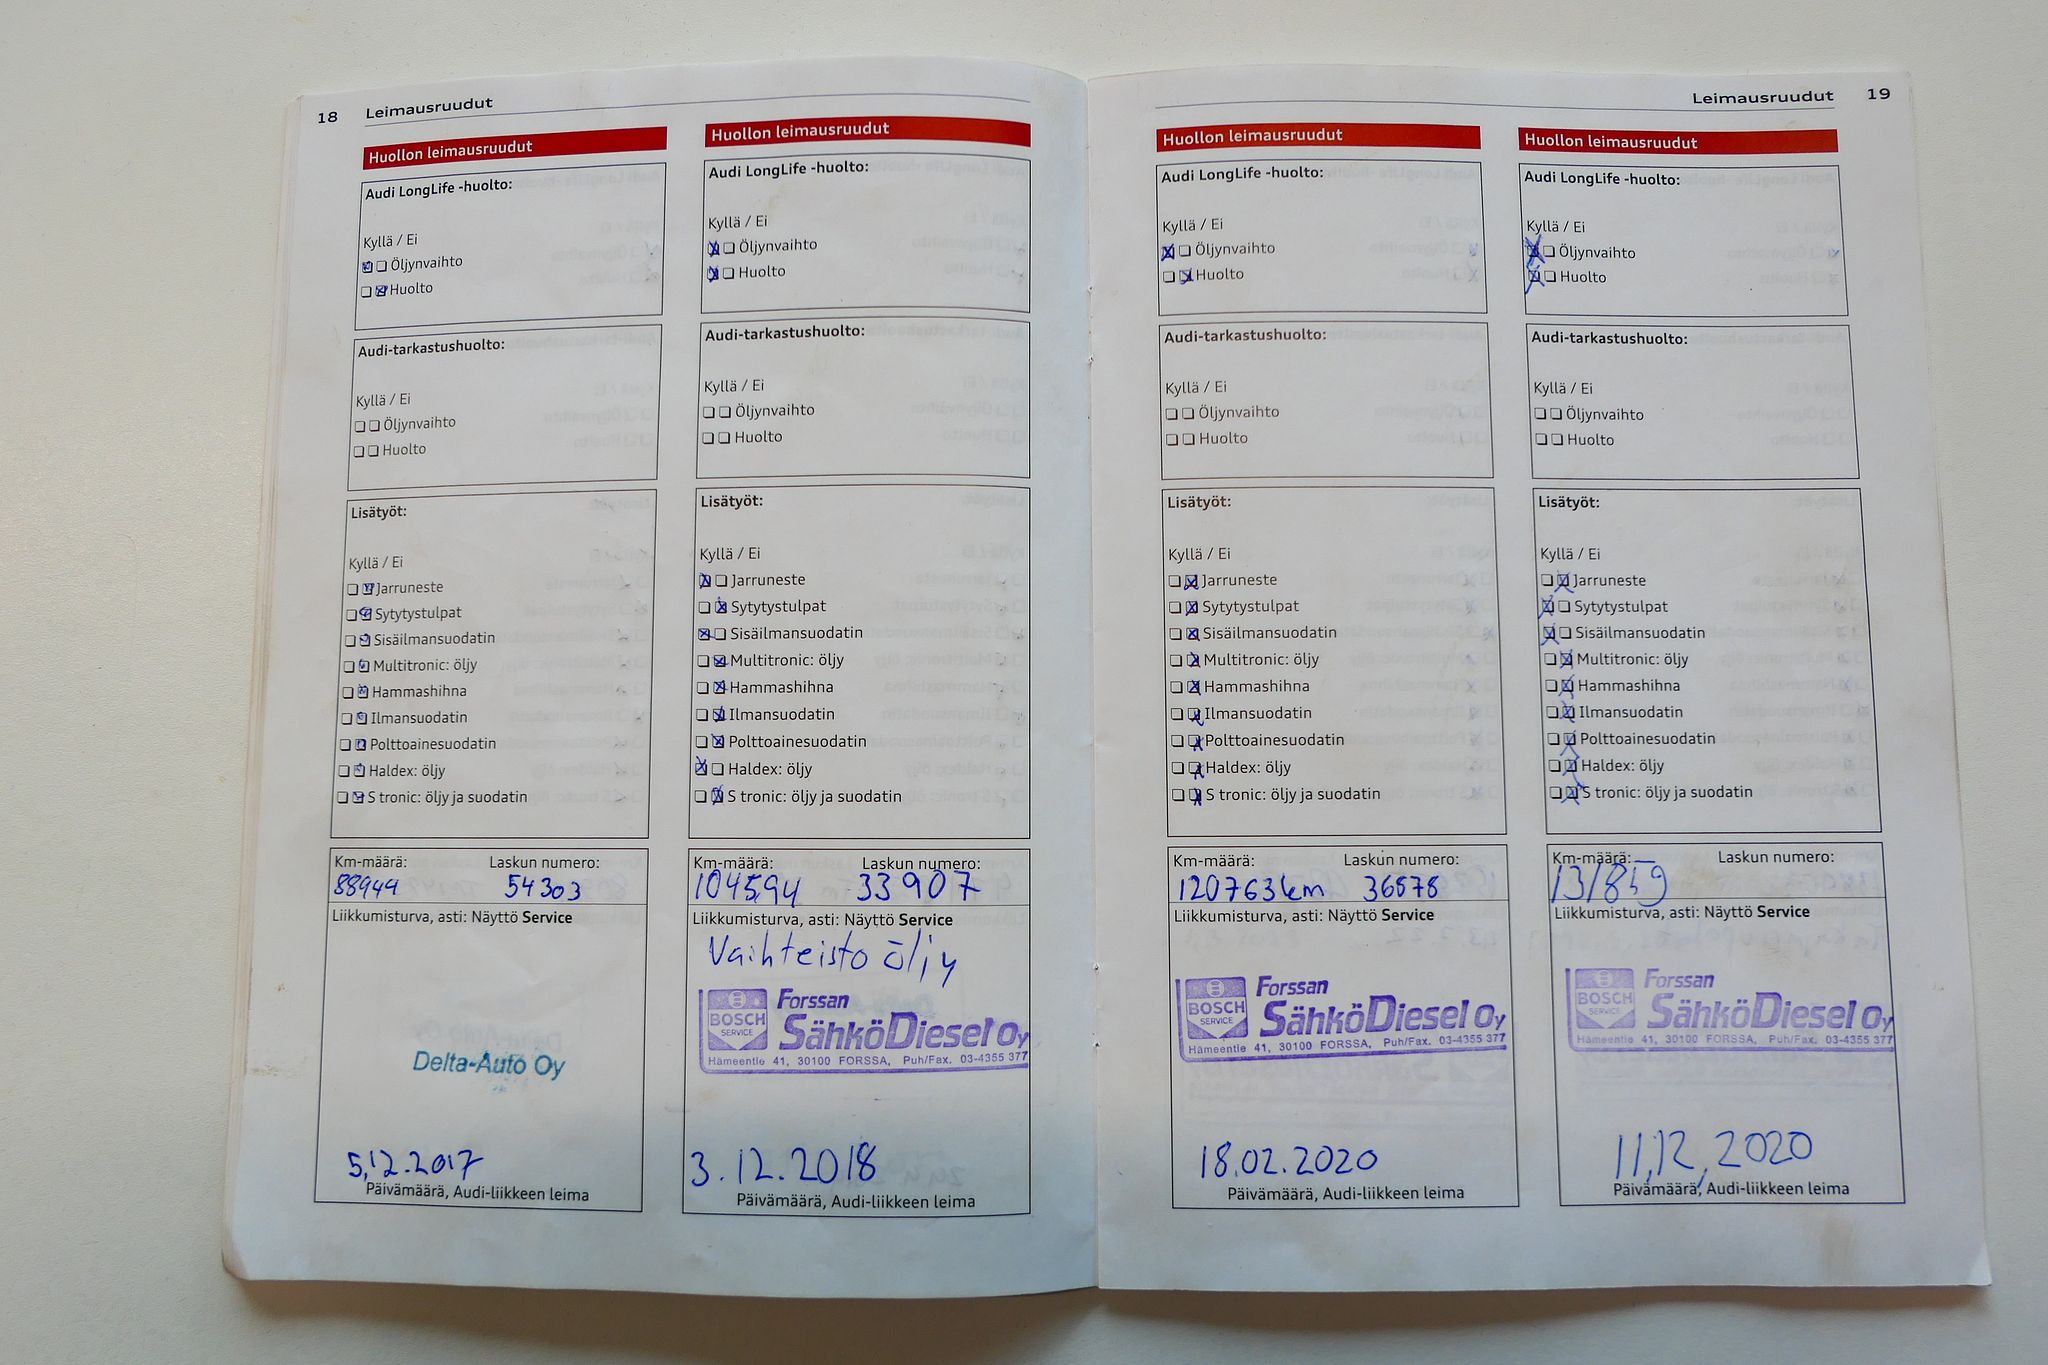 18 Leimausruudut
Huollon leimausruudut
Audi LongLife -huolto:
Kyllä / Ei
Öljynvaihto
Huolto
Audi-tarkastushuolto:
Kyllä / Ei
Öljynvaihto
Huolto
Lisätyöt:
Kyllä / Ei
Jarruneste
Sytytystulpat
Sisäilmansuodatin
Multitronic: öljy
Hammashihna
Ilmansuodatin
Polttoainesuodatin
Haldex: öljy
S tronic: öljy ja suodatin
Km-määrä: Laskun numero:
88944 54303
Liikkumisturva, asti: Näyttö Service
Delta-Auto Oy
5.12.2017
Päivämäärä, Audi-liikkeen leima
Huollon leimausruudut
Audi LongLife -huolto:
Kyllä / Ei
Öljynvaihto
Huolto
Audi-tarkastushuolto:
Kyllä / Ei
Öljynvaihto
Huolto
Lisätyöt:
Kyllä / Ei
Jarruneste
Sytytystulpat
Sisäilmansuodatin
Multitronic: öljy
Hammashihna
Ilmansuodatin
Polttoainesuodatin
Haldex: öljy
S tronic: öljy ja suodatin
Km-määrä: Laskun numero:
104594 33907
Liikkumisturva, asti: Näyttö Service
Vaihteisto öljy
Forssan
BOSCH SähköDiesel Oy
SERVICE
Hämeentie 41, 30100 FORSSA, Puh/Fax. 03-4355 377
3.12.2018
Päivämäärä, Audi-liikkeen leima
Leimausruudut 19
Huollon leimausruudut
Audi LongLife -huolto:
Kyllä / Ei
Öljynvaihto
Huolto
Audi-tarkastushuolto:
Kyllä / Ei
Öljynvaihto
Huolto
Lisätyöt:
Kyllä / Ei
Jarruneste
Sytytystulpat
Sisäilmansuodatin
Multitronic: öljy
Hammashihna
Ilmansuodatin
Polttoainesuodatin
Haldex: öljy
S tronic: öljy ja suodatin
Km-määrä: Laskun numero:
120763km 36878
Liikkumisturva, asti: Näyttö Service
Forssan
BOSCH SähköDiesel Oy
SERVICE
Hämeentie 41, 30100 FORSSA, Puh/Fax. 03-4355 377
18.02.2020
Päivämäärä, Audi-liikkeen leima
Huollon leimausruudut
Audi LongLife -huolto:
Kyllä / Ei
Öljynvaihto
Huolto
Audi-tarkastushuolto:
Kyllä / Ei
Öljynvaihto
Huolto
Lisätyöt:
Kyllä / Ei
Jarruneste
Sytytystulpat
Sisäilmansuodatin
Multitronic: öljy
Hammashihna
Ilmansuodatin
Polttoainesuodatin
Haldex: öljy
S tronic: öljy ja suodatin
Km-määrä: Laskun numero:
131859
Liikkumisturva, asti: Näyttö Service
Forssan
BOSCH SähköDiesel Oy
SERVICE
Hämeentie 41, 30100 FORSSA, Puh/Fax. 03-4355 377
11,12,2020
Päivämäärä, Audi-liikkeen leima